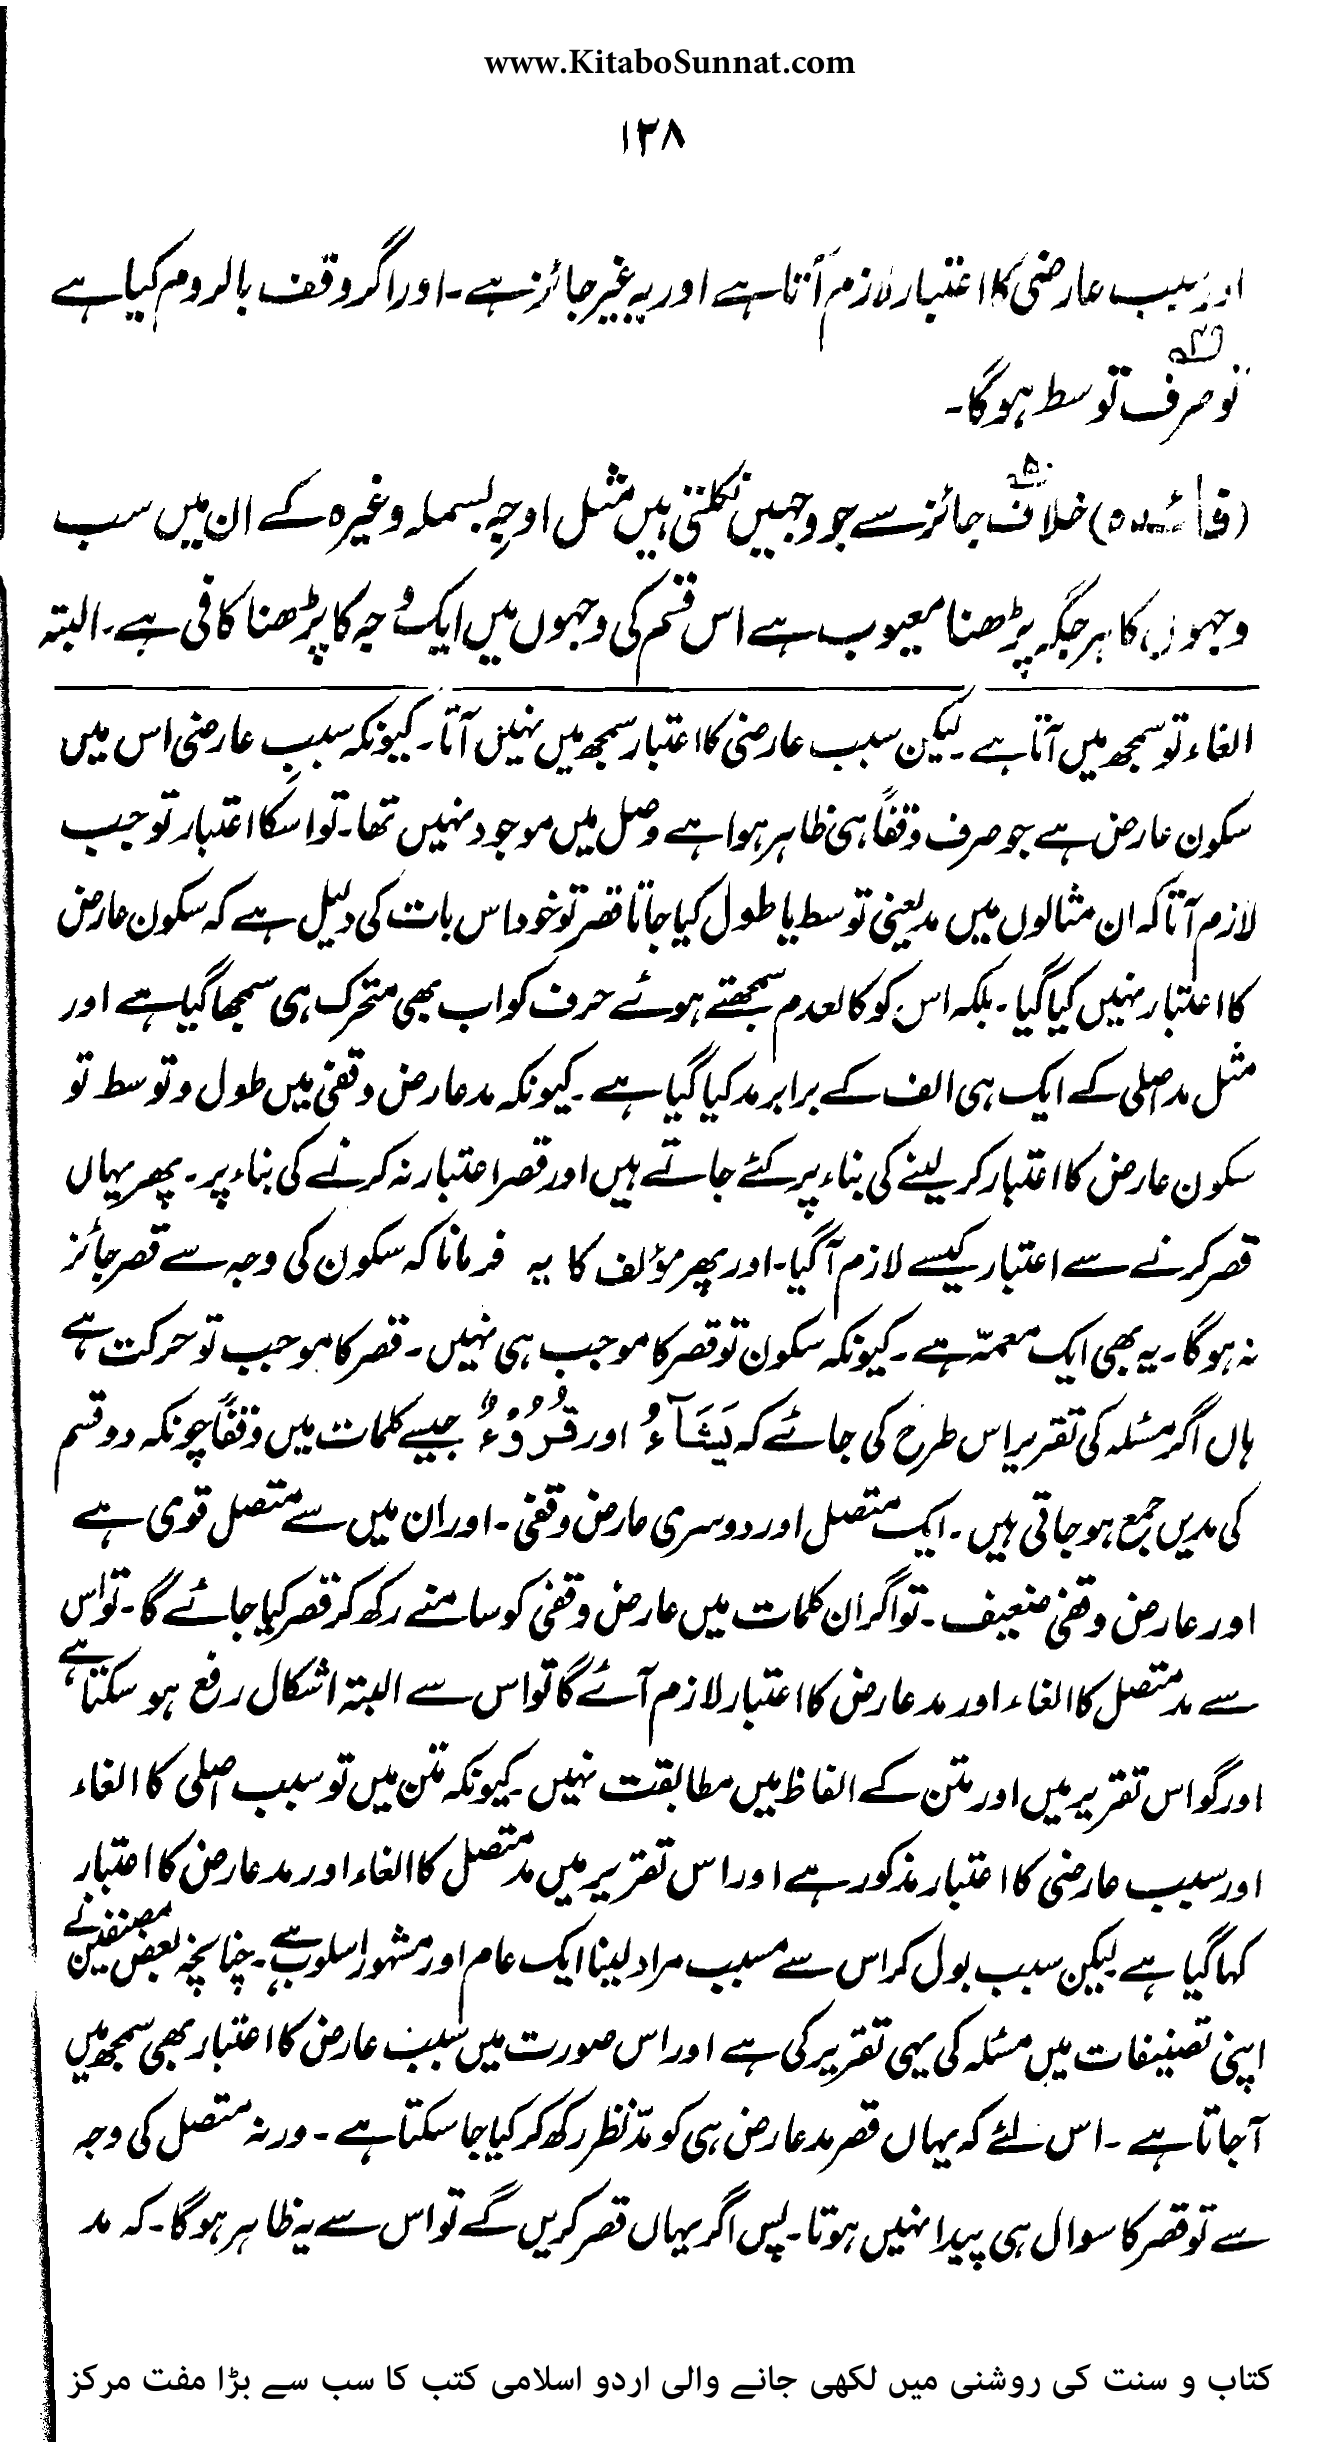 www.KitaboSunnat.com
۱۳۸
اور سبب عارضی کا اعتبار لازم آتا ہے اور یہ غیر جائز ہے۔ اور اگر وقف بالروم کیا ہے
تو صرف توسط ہوگا۔
(فائدہ) خلاف جائز سے جو وجہیں نکلتی ہیں مثل اوجِہِ بسملہ وغیرہ کے ان میں سب
وجہوں کا ہر جگہ پڑھنا معیوب ہے اس قسم کی وجہوں میں ایک وجہ کا پڑھنا کافی ہے۔ البتہ
الغاء تو سمجھ میں آتا ہے۔ لیکن سبب عارضی کا اعتبار سمجھ میں نہیں آتا۔ کیونکہ سببِ عارضی اس میں
سکون عارض ہے جو صرف وقفاً ہی ظاہر ہوا ہے وصل میں موجود نہیں تھا۔ تو اسکا اعتبار تو جب
لازم آتا کہ ان مثالوں میں مد یعنی توسط یا طول کیا جاتا قصر تو خود اس بات کی دلیل ہے کہ سکون عارض
کا اعتبار نہیں کیا گیا۔ بلکہ اس کو کالعدم سمجھتے ہوئے حرف کو اب بھی متحرک ہی سمجھا گیا ہے اور
مثل مد اصلی کے ایک ہی الف کے برابر مد کیا گیا ہے۔ کیونکہ مد عارض وقفی میں طول و توسط تو
سکون عارض کا اعتبار کر لینے کی بناء پر کئے جاتے ہیں اور قصر اعتبار نہ کرنے کی بناء پر۔ پھر یہاں
قصر کرنے سے اعتبار کیسے لازم آگیا۔ اور پھر مؤلف کا یہ فرمانا کہ سکون کی وجہ سے قصر جائز
نہ ہوگا۔ یہ بھی ایک معمہّ ہے۔ کیونکہ سکون تو قصر کا موجب ہی نہیں۔ قصر کا موجب تو حرکت ہے
ہاں اگر مسئلہ کی تقریر اس طرح کی جائے کہ یَشَآءُ اور قُرُوْءٌ جیسے کلمات میں وقفاً چونکہ دو قسم
کی مدیں جمع ہو جاتی ہیں۔ ایک متصل اور دوسری عارض وقفی۔ اور ان میں سے متصل قوی ہے
اور عارض وقفی ضعیف۔ تو اگر ان کلمات میں عارض وقفی کو سامنے رکھ کر قصر کیا جائے گا۔ تو اس
سے مد متصل کا الغاء اور مد عارض کا اعتبار لازم آئے گا تو اس سے البتہ اشکال رفع ہو سکتا ہے
اور گو اس تقریر میں اور متن کے الفاظ میں مطابقت نہیں۔ کیونکہ متن میں تو سبب اصلی کا الغاء
اور سبب عارضی کا اعتبار مذکور ہے اور اس تقریر میں مد متصل کا الغاء اور مد عارض کا اعتبار
کہا گیا ہے لیکن سبب بول کر اس سے مسبب مراد لینا ایک عام اور مشہور اسلوب ہے۔ چنانچہ بعض مصنفین نے
اپنی تصنیفات میں مسئلہ کی یہی تقریر کی ہے اور اس صورت میں سبب عارض کا اعتبار بھی سمجھ میں
آجاتا ہے۔ اس لئے کہ یہاں قصر مد عارض ہی کو مدّ نظر رکھ کر کیا جا سکتا ہے۔ ورنہ متصل کی وجہ
سے تو قصر کا سوال ہی پیدا نہیں ہوتا۔ پس اگر یہاں قصر کریں گے تو اس سے یہ ظاہر ہوگا۔ کہ مد
کتاب و سنت کی روشنی میں لکھی جانے والی اردو اسلامی کتب کا سب سے بڑا مفت مرکز